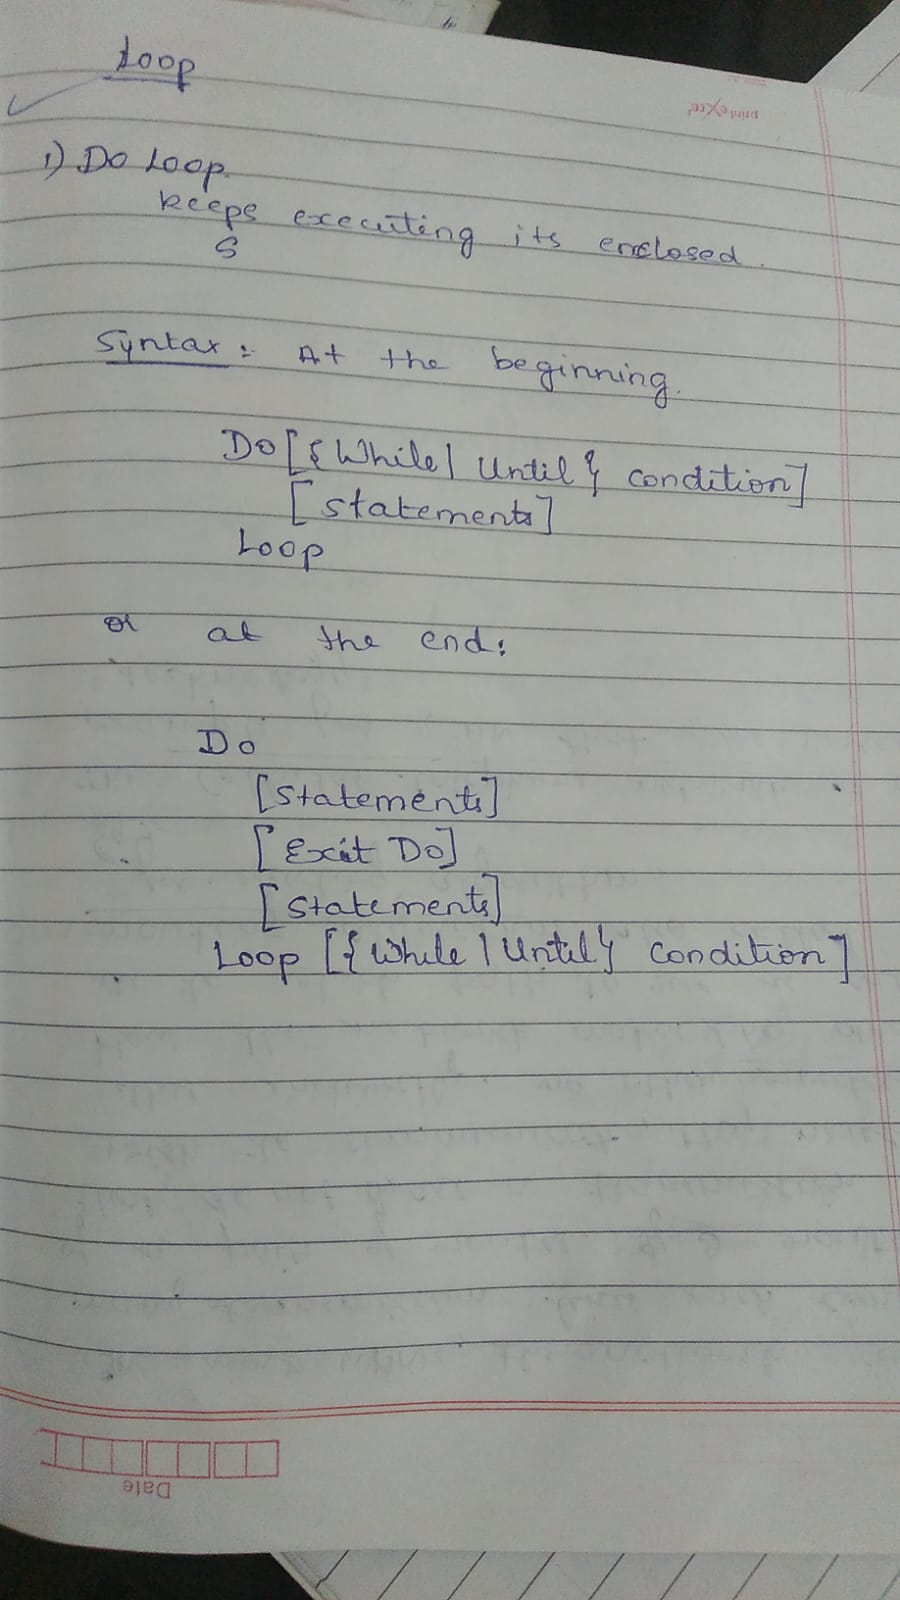 Loop
printexcel
1) Do Loop.
keeps executing its enclosed.
S
Syntax :- At the beginning.
Do [{ While | Until } condition]
[statements]
Loop
or at the end:
Do
[Statements]
[Exit Do]
[Statements]
Loop [{ While | Until } Condition]
Date